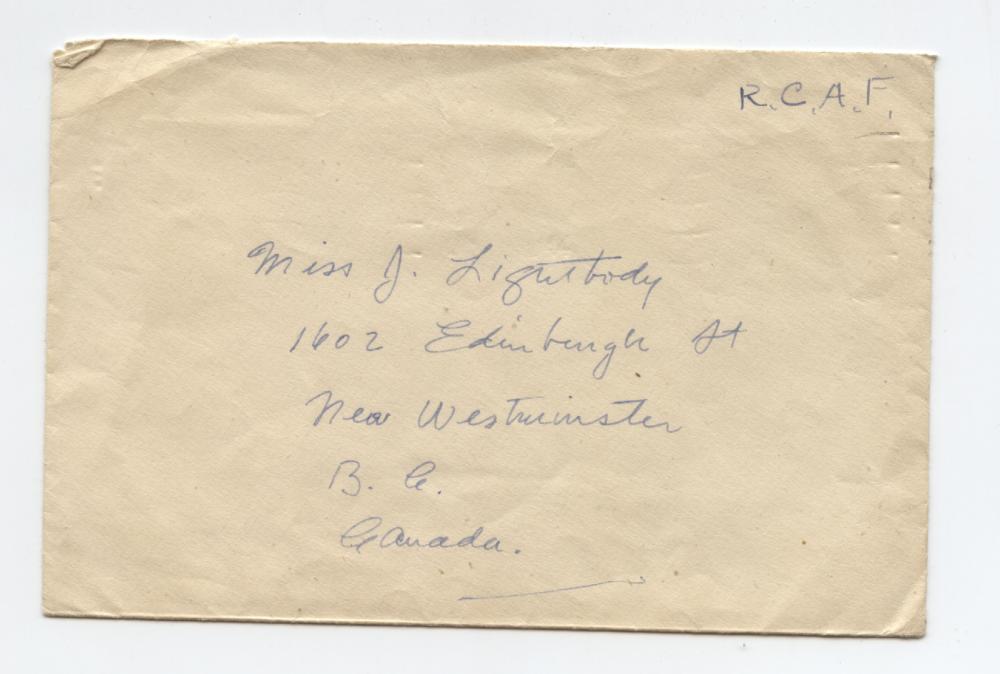 R.C.A.F.
Miss J. Lightbody
1602 Edinburgh St
New Westminster
B. C.
Canada.